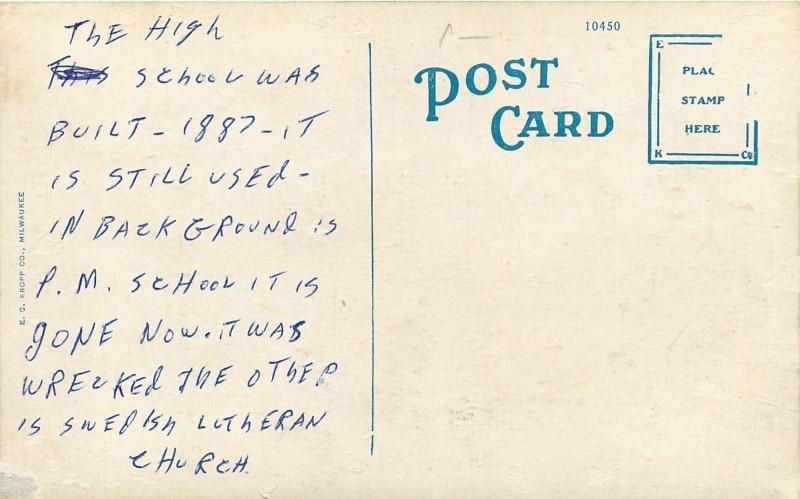 THE HIGH
SCHOOL WAS
BUILT - 1887 - IT
IS STILL USED -
IN BACKGROUND IS
P. M. SCHOOL IT IS
GONE NOW. IT WAS
WRECKED THE OTHER
IS SWEDISH LUTHERAN
CHURCH.
E. C. KROPP CO., MILWAUKEE
10450
POST
CARD
E
PLAC
STAMP
HERE
K Co